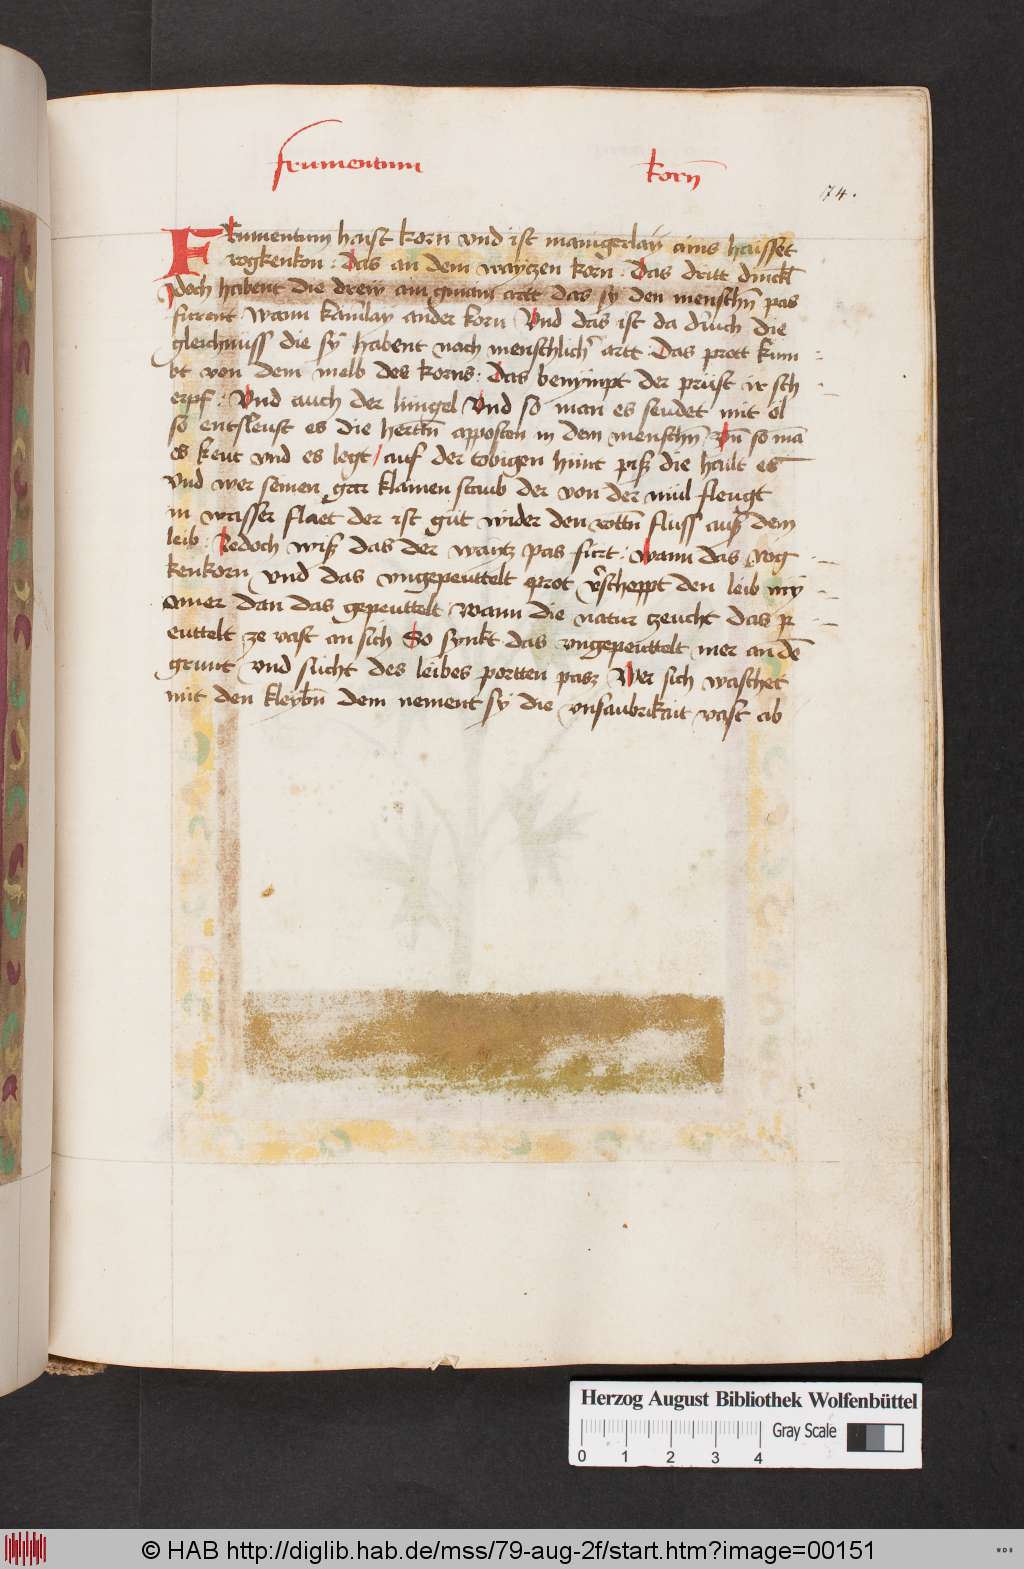 frumentum korn̄
74.
Frumentum haist korn vnd ist manigerlay ains haisset
rogkenkorn : Das an dem waytzen korn : Das dritt dinckl̄
Idoch habent die drew ain gmain artt das sy den menschn̄ pas
furent wann kainlay ander korn Vnd das ist da durch die
gleichnuss die sy habent nach menschlich̄ artt Das prott kum
bt von dem melb des korns : Das benympt der prust ir sch
erpf : Vnd auch der lungel Vnd so man es seudet mit öl
so entsleust es die herttn̄ apposten in dem menschn̄ Vn̄ so mā
es keut vnd es legt auf der tobigen hunt piß die hailt es
vnd wer semen gar klainen staub der von der mül fleugt
in wasser flaet der ist gut wider den rottn̄ fluss auß dem
leib : Iedoch wiß das der waitz pas furt : Wann das rog
kenkorn vnd das vngepeuttelt prot v̄scheppt den leib my
nner dan das gepeuttelt wann die natur tzeucht das p
euttelt ze vast an sich So synkt das vngepeuttelt mer an dē
grunt vnd sucht des leibes portten pasz Wer sich waschet
mit den kleybn̄ dem nement sy die vnsaubrikait vast ab
Herzog August Bibliothek Wolfenbüttel
0 1 2 3 4 Gray Scale
© HAB http://diglib.hab.de/mss/79-aug-2f/start.htm?image=00151